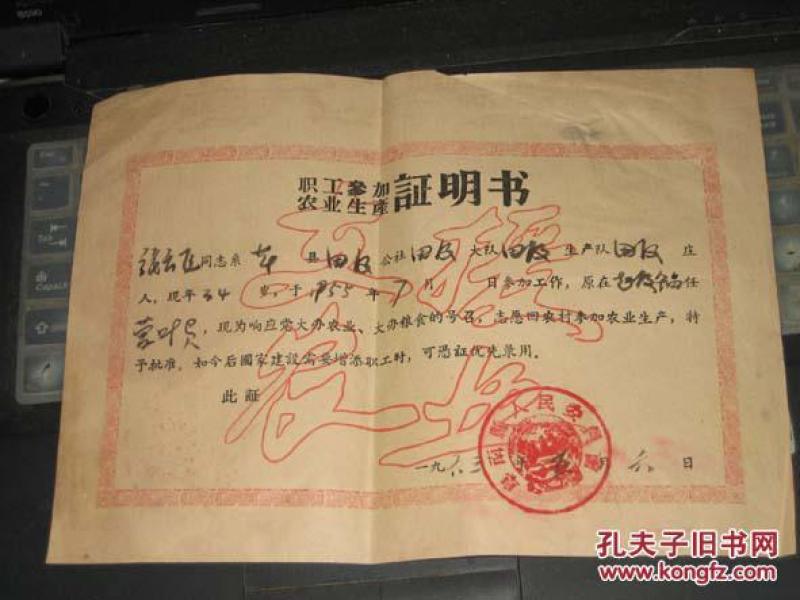 职工参加
农业生產 証明书
同志系 本 县 田段 公社 田段 大队 田段 生产队 田段 庄
人，现年 34 岁，于 1955 年 7 月 日参加工作，原在 任
营业员，现为响应党大办农业、大办粮食的号召，志愿回农村参加农业生产，特
予批准。如今后國家建設需要增添职工时，可凭証优先录用。
此証
支援农业
人民委員會
一九六三年五月六日
孔夫子旧书网
www.kongfz.com